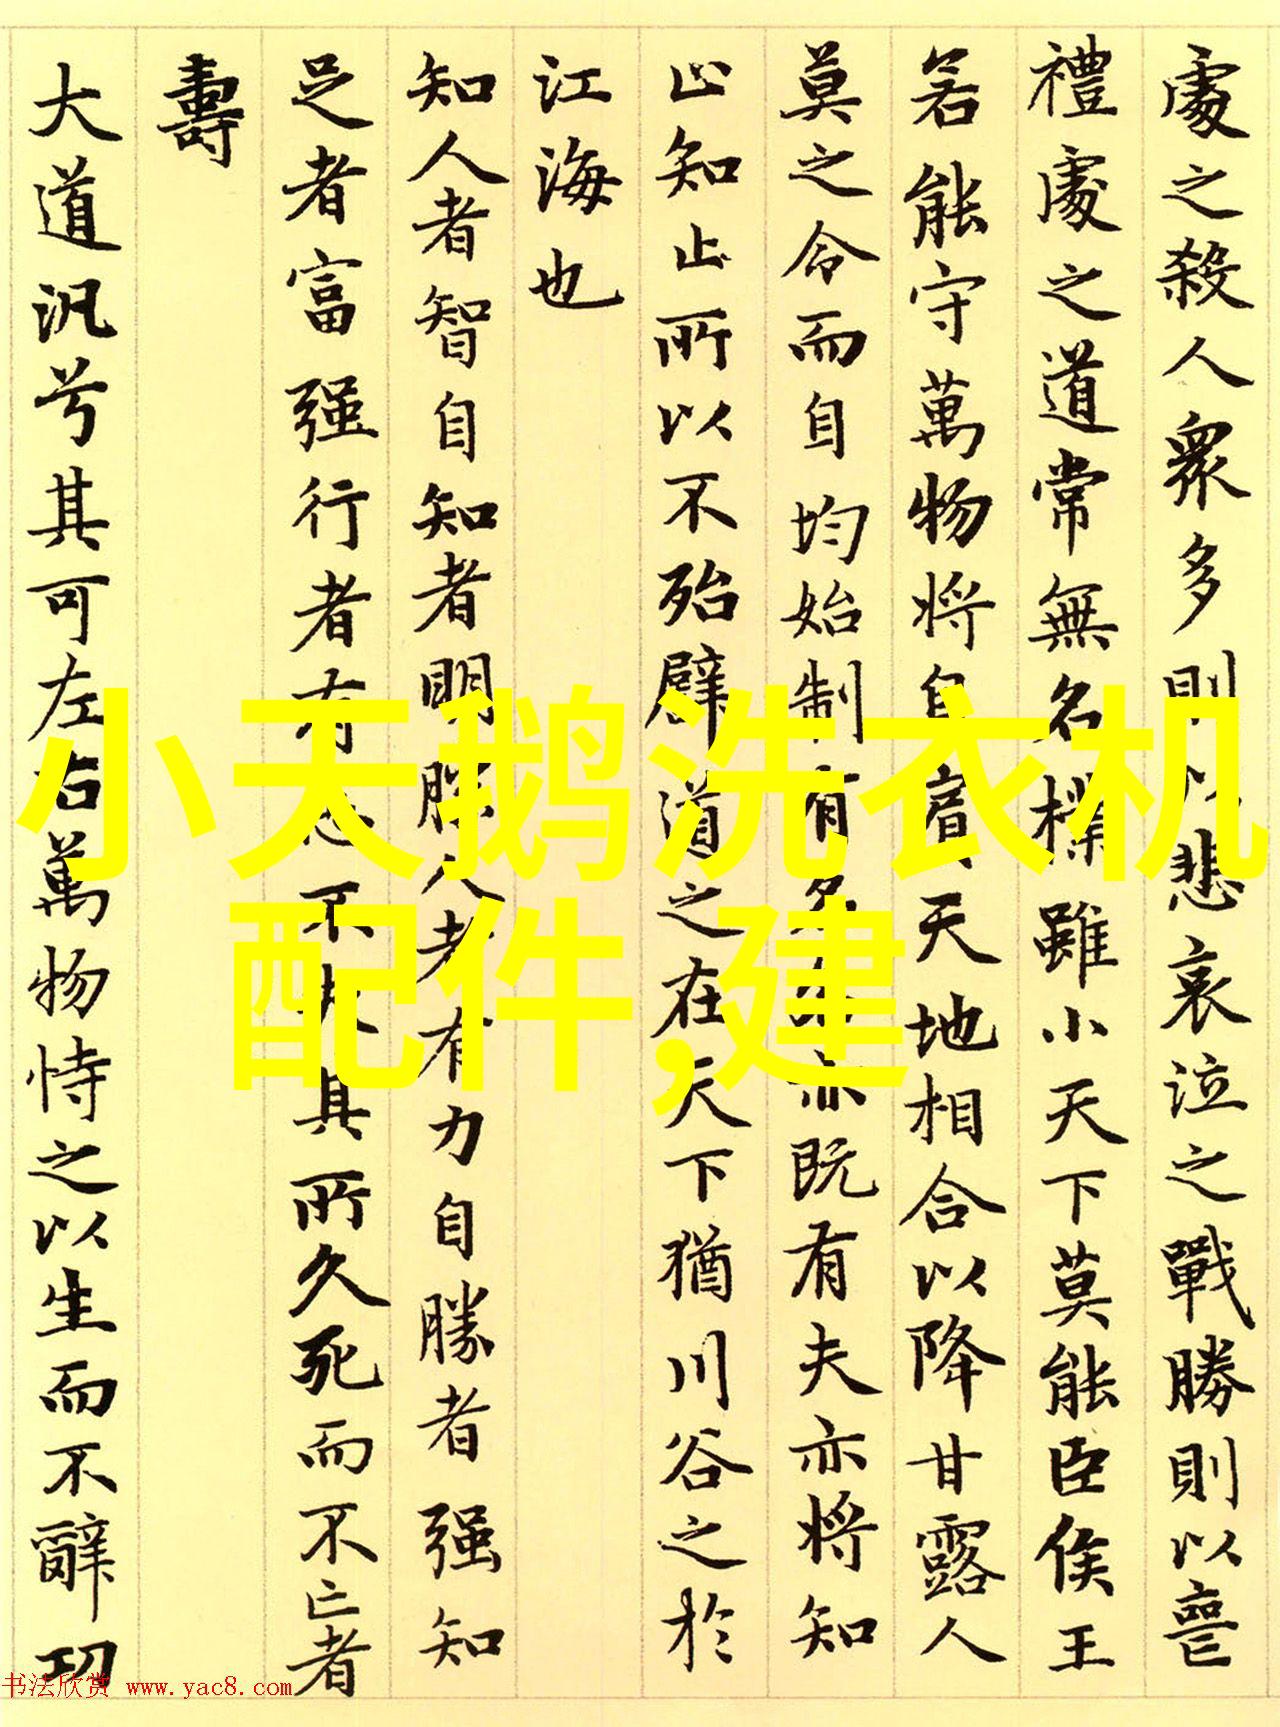 處之殺人衆多則以悲哀泣之戰勝則以喪
禮處之道常無名樸雖小天下莫能臣侯王
若能守萬物將自賓天地相合以降甘露人
莫之令而自均始制有名名亦既有夫亦將知
止知止所以不殆譬道之在天下猶川谷之於
江海也
知人者智自知者明勝人者有力自勝者强知
足者富强行者有志不失其所久死而不亡者
壽
大道汎兮其可左右萬物恃之以生而不辭功
小天鹅洗衣机
配件,建
书法欣赏 www.yac8.com